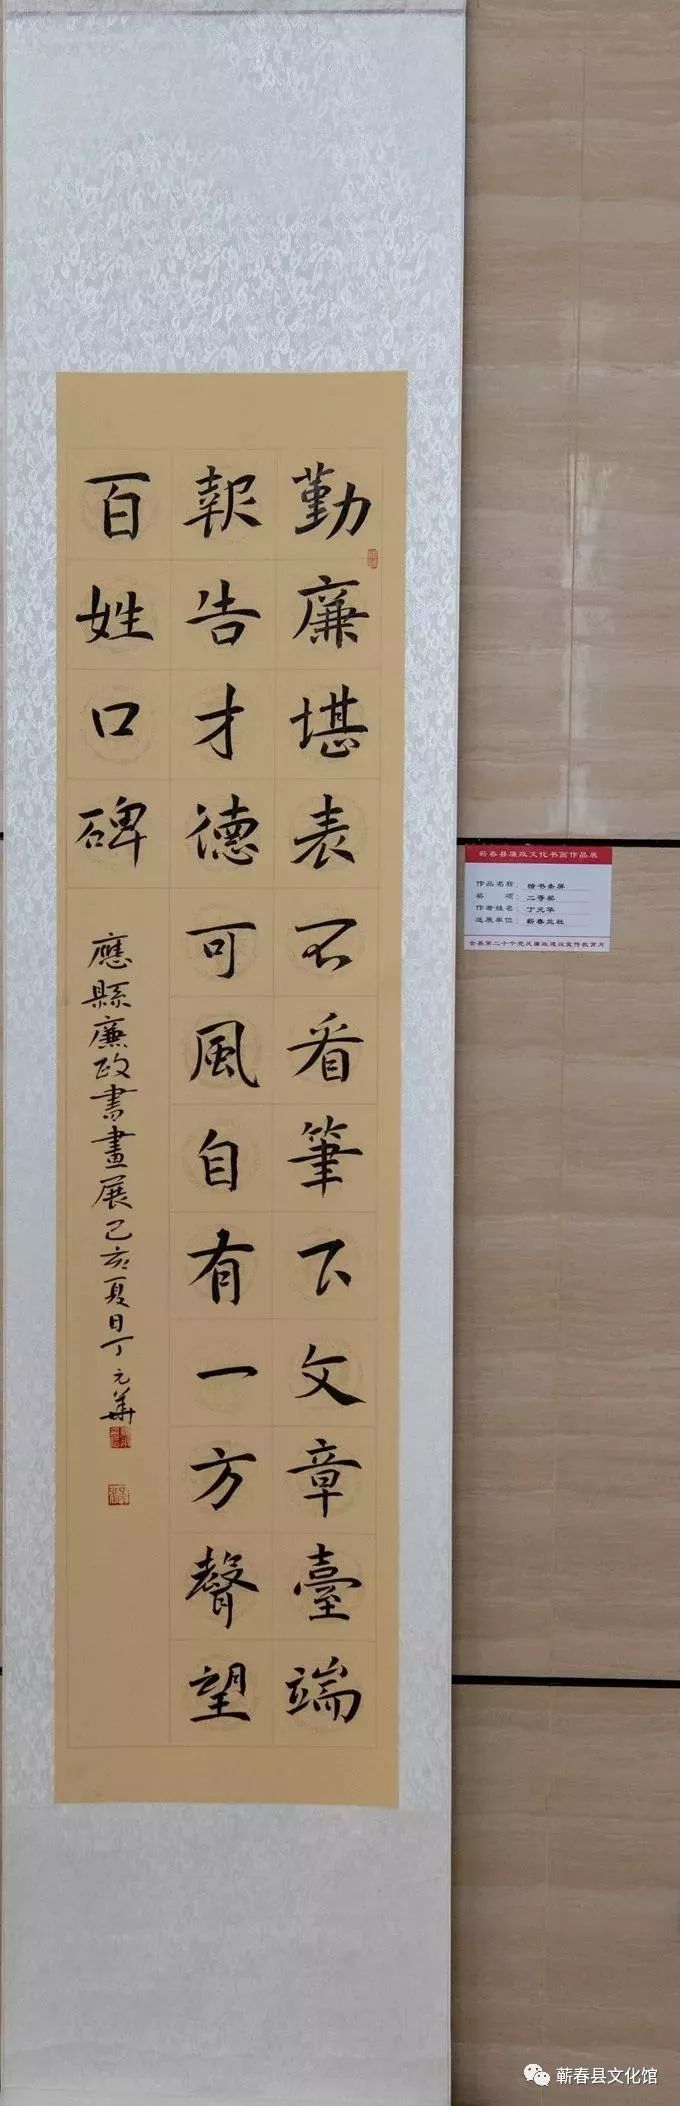 勤廉堪表不看筆下文章臺端
報告才德可風自有一方聲望
百姓口碑
應縣廉政書畫展己亥夏日丁元華
蕲春县廉政文化书画作品展
作品名称：楷书条屏
奖项：二等奖
作者姓名：丁元华
送展单位：蕲春兰社
全县第二十个党风廉政建设宣传教育月
蕲春县文化馆